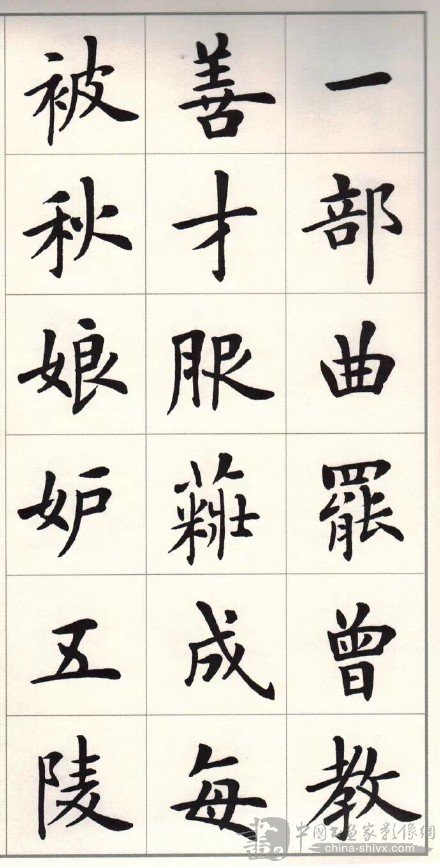 一部曲罷曾教
善才服粧成每
被秋娘妒五陵
中国书画家影像網
china-shivx.com